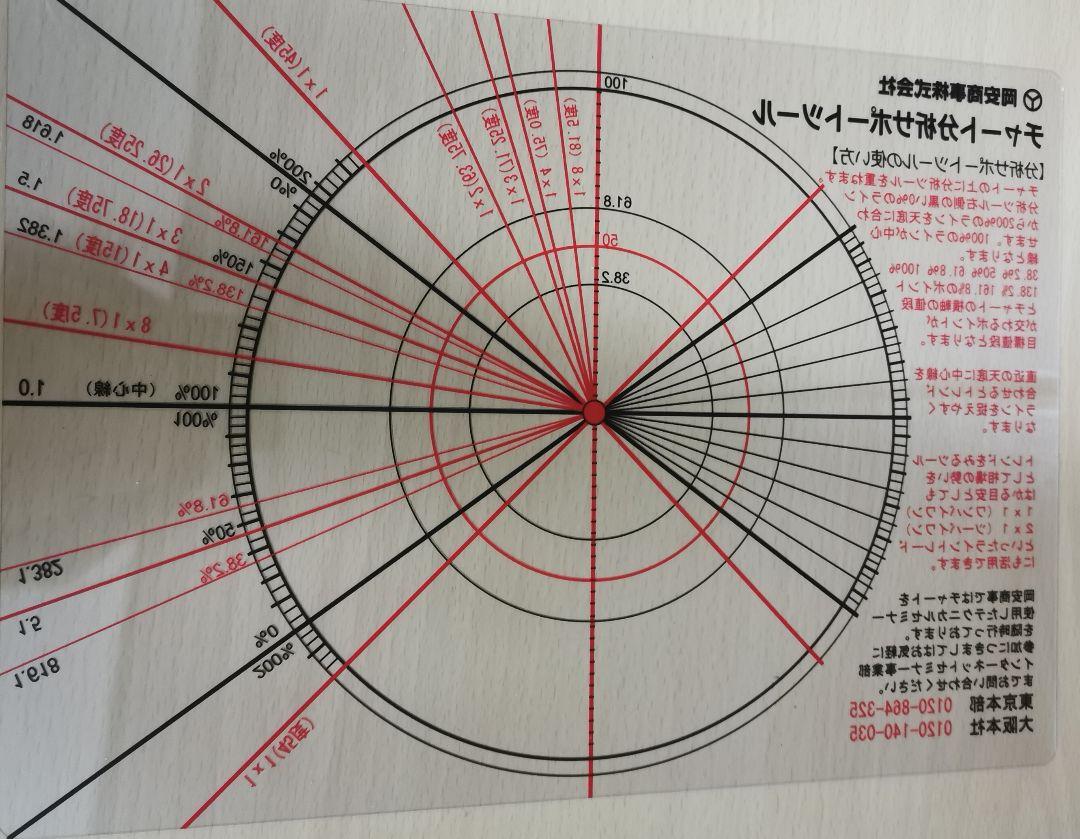 岡安商事株式会社
チャート分析サポートツール
【分析サポートツールの使い方】
チャートの上に分析ツールを重ねます。
分析ツール右側の黒い0%のライン
から200%のラインを天底に合わ
せます。100%のラインが中心
線となります。
38.2% 50% 61.8% 100%
138.2% 161.8%のポイント
とチャートの横軸の値段
が交わるポイントが
目標値段となります。
直近の天底に中心線を
合わせるとトレンド
ラインを捉えやすく
なります。
トレンドをみるツール
として相場の勢いを
はかる目安としても
1×1(ワンバイワン)
2×1(ツーバイワン)
といったラインドレード
にも活用できます。
岡安商事ではチャートを
使用したテクニカルセミナー
を随時行っております。
参加につきましてはお気軽に
インターネットセミナー事業部
までお問い合わせください。
東京本部 0120-864-325
大阪本社 0120-140-035
100
61.8
50
38.2
8×1(81.5度)
4×1(75.0度)
3×1(71.25度)
1×2(63.75度)
1×1(45度)
200%
0%
1.618
2×1(26.25度)
161.8%
1.5
3×1(18.75度)
150%
1.382
4×1(15度)
138.2%
8×1(7.5度)
1.0
(中心線)
100%
100%
61.8%
50%
38.2%
1.382
1.5
1.618
0%
200%
1×1(45度)